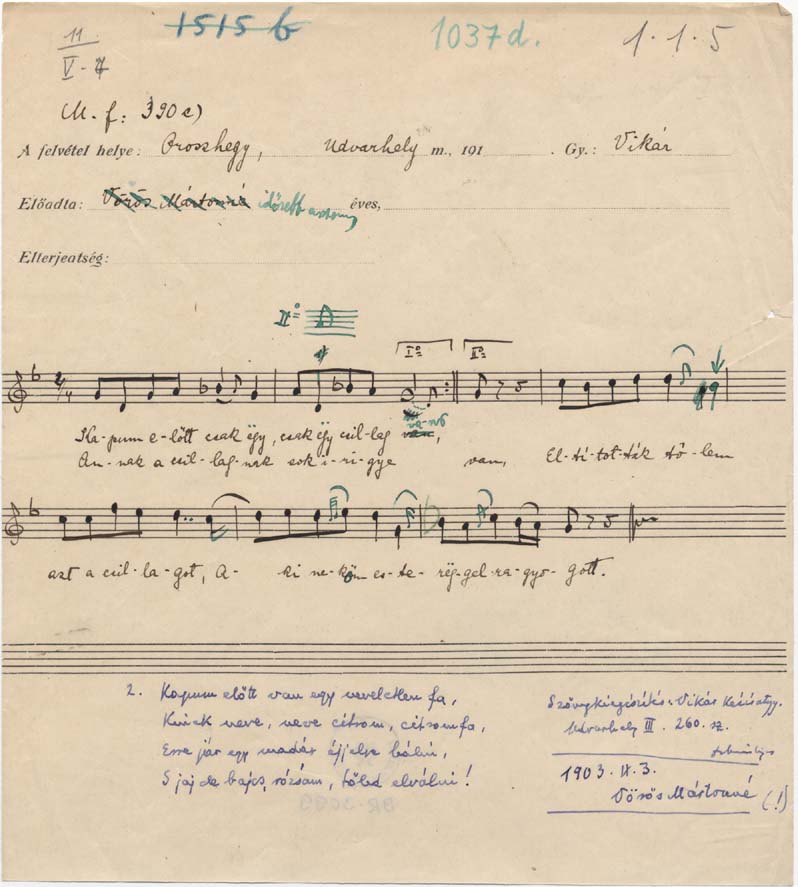 11
V-7
1515 b
1037 d.
1.1.5
M. f: 390 e)
A felvétel helye: Oroszhegy, Udvarhely m., 191 . Gy.: Vikár
Előadta: Vörös Mártonné idősebb asszony éves,
Elterjedtség:
II°=
I°= II°=
Ka-pum e-lőtt csak ëgy, csak ëgy csil-lag van,
An-nak a csil-lag-nak sok i-ri-gye van, El-ti-tot-ták tő-lem
azt a csil-la-got, A- ki ne-köm es-te- rëg-gel ra-gyo-gott.
2. Kapum előtt van egy neveletlen fa,
Kinek neve, neve citrom, citromfa,
Erre jár egy madár éjjelre hálni,
S jaj de bajos, rózsám, tőled elválni!
Szövegkiegészítés: Vikár
Udvarhely III. 260. sz.
1903. IX. 3.
Vörös Mártonné (!)